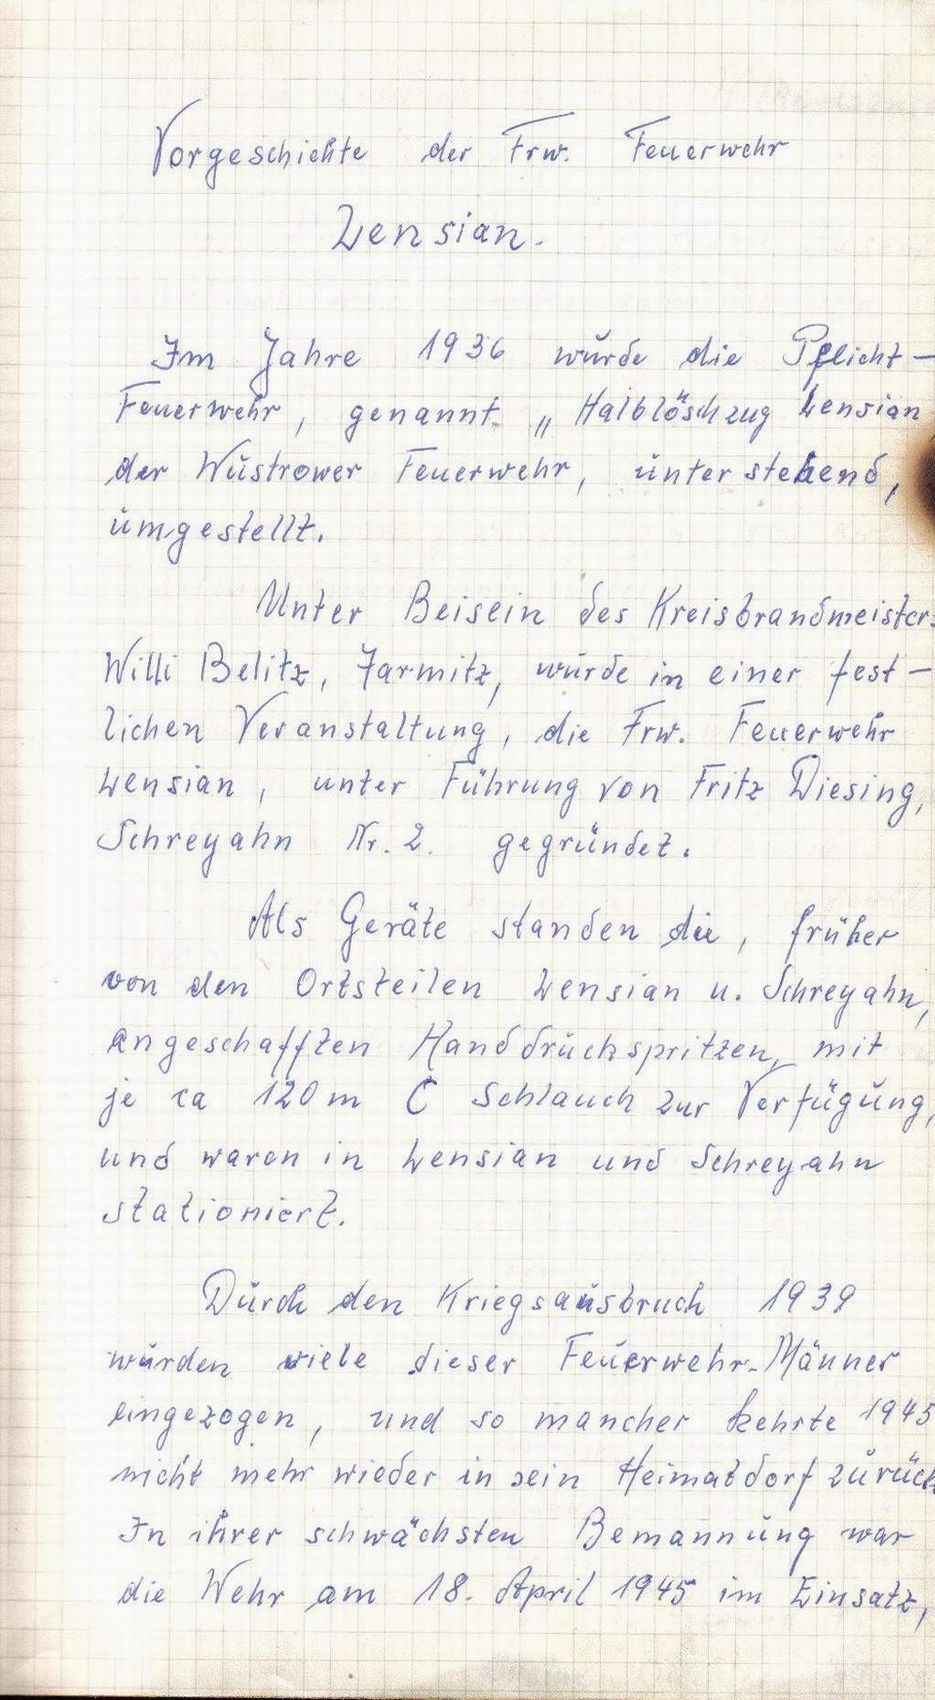 Vorgeschichte der Frw. Feuerwehr
Lensian.
Im Jahre 1936 wurde die Pflicht-
Feuerwehr, genannt „Halblöschzug Lensian
der Wustrower Feuerwehr, unterstehend,
umgestellt.
Unter Beisein des Kreisbrandmeisters
Willi Belitz, Jarmitz, wurde in einer fest-
lichen Veranstaltung, die Frw. Feuerwehr
Lensian, unter Führung von Fritz Diesing,
Schreyahn Nr. 2. gegründet.
Als Geräte standen die, früher
von den Ortsteilen Lensian u. Schreyahn,
angeschafften Handdruckspritzen, mit
je ca 120 m C Schlauch zur Verfügung,
und waren in Lensian und Schreyahn
stationiert.
Durch den Kriegsausbruch 1939
wurden viele dieser Feuerwehr-Männer
eingezogen, und so mancher kehrte 1945
nicht mehr wieder in sein Heimatdorf zurück
In ihrer schwächsten Bemannung war
die Wehr am 18. April 1945 im Einsatz,